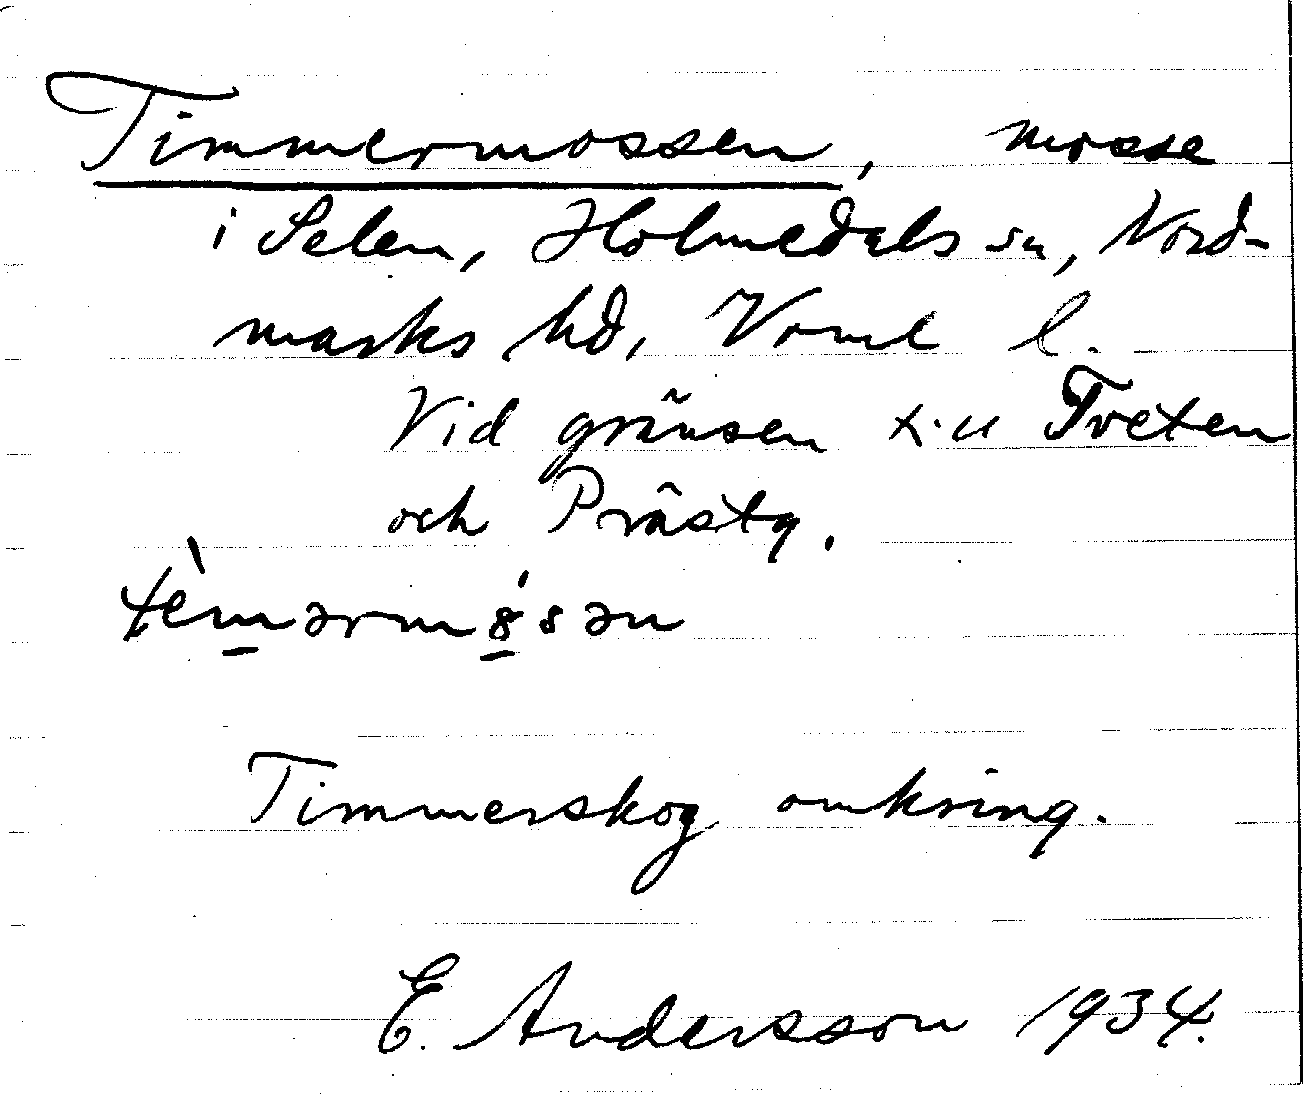 Timmermossen, mosse
i Selen, Holmedals sn, Nord-
marks hd, Värml l.
Vid gränsen till Tveten
och Prästg.
tèmərmósən
Timmerskog omkring.
E. Andersson 1934.